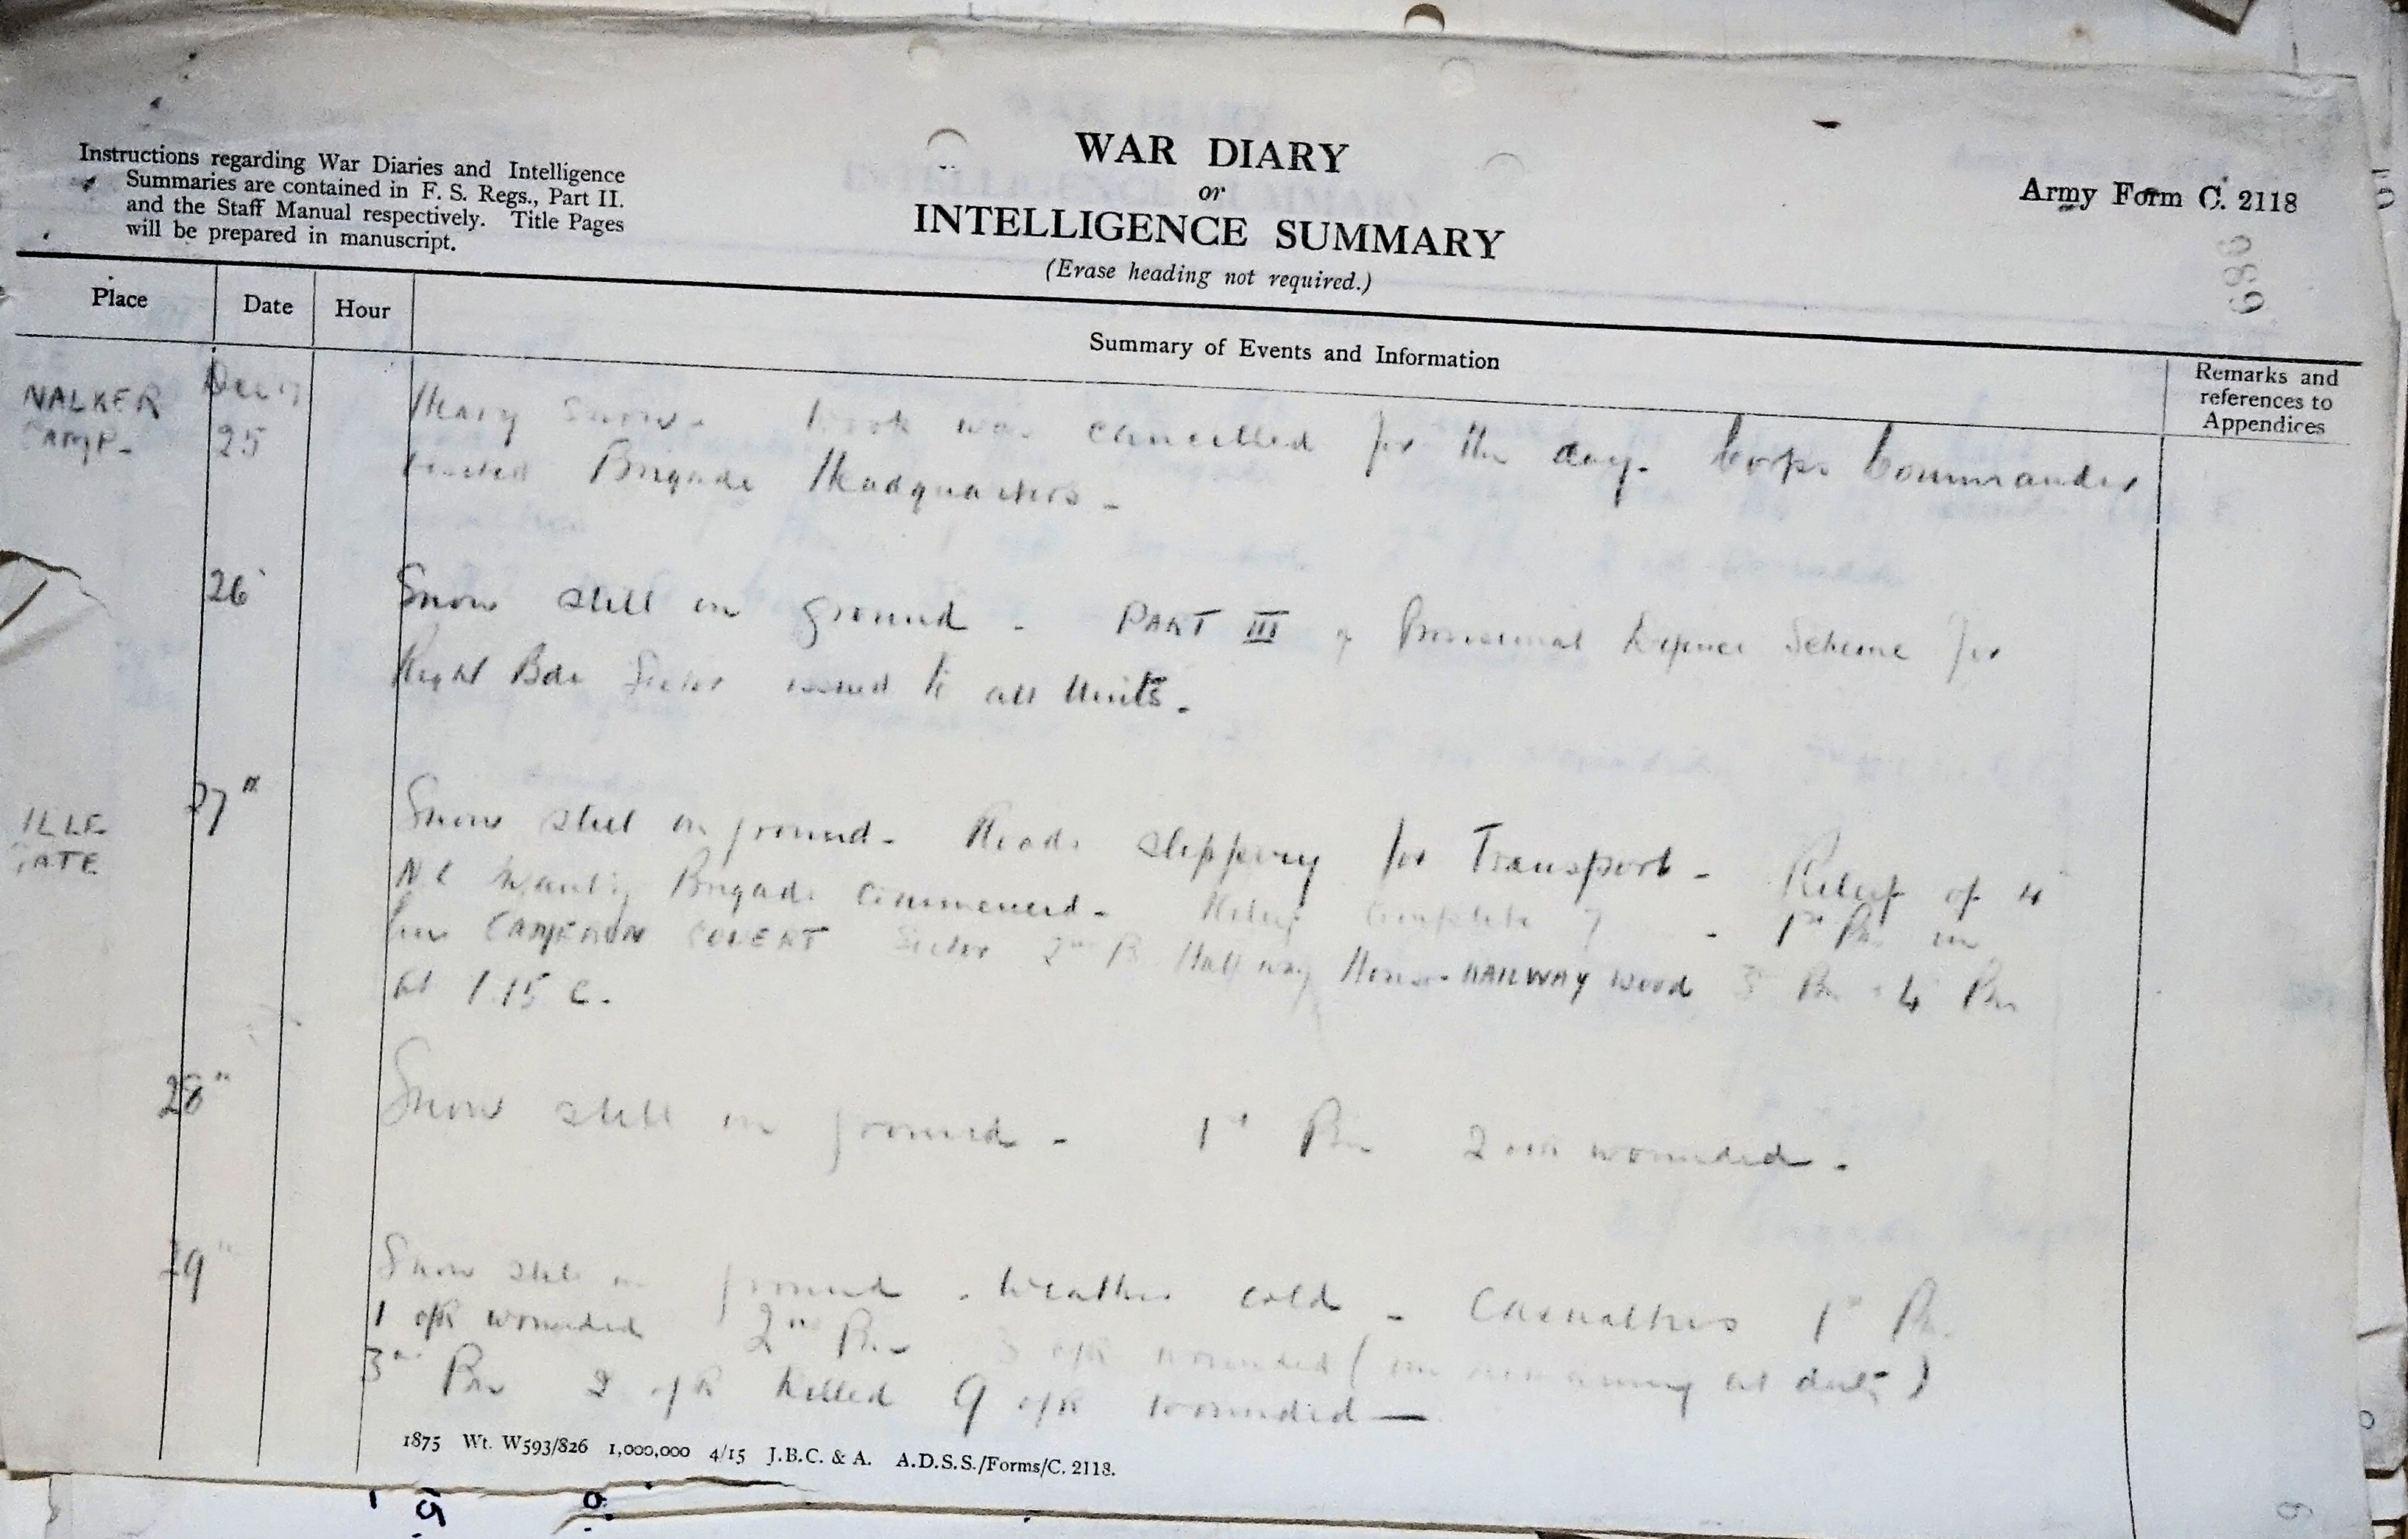 Instructions regarding War Diaries and Intelligence
Summaries are contained in F. S. Regs., Part II.
and the Staff Manual respectively. Title Pages
will be prepared in manuscript.
WAR DIARY
or
INTELLIGENCE SUMMARY
(Erase heading not required.)
Army Form C. 2118
689
Place
Date
Hour
Summary of Events and Information
Remarks and
references to
Appendices
WALKER CAMP.
Dec 17
25
Heavy snow. Work was cancelled for the day. Corps Commander
visited Brigade Headquarters -
26
Snow still on ground - PART III of Provisional Defence Scheme for
Right Bde Sector issued to all Units.
ILLE
GATE
27"
Snow still on ground - Roads slippery for Transport - Relief of 4
Brigade commenced - Relief complete - 1st Bn in
line CAMERON COVERT Sector 2nd B Half way House - RAILWAY Wood 3 Bn 4 Bn
at 1.15 c.
28"
Snow still on ground - 1st Bn 2 o/r wounded.
29"
Snow still on ground. Weather cold - Casualties 1st Bn
1 o/R wounded 2nd Bn 3 o/R wounded (one remaining at duty)
3rd Bn 2 o/R Killed 9 o/R wounded —
1875 Wt. W593/826 1,000,000 4/15 J.B.C. & A. A.D.S.S./Forms/C. 2118.